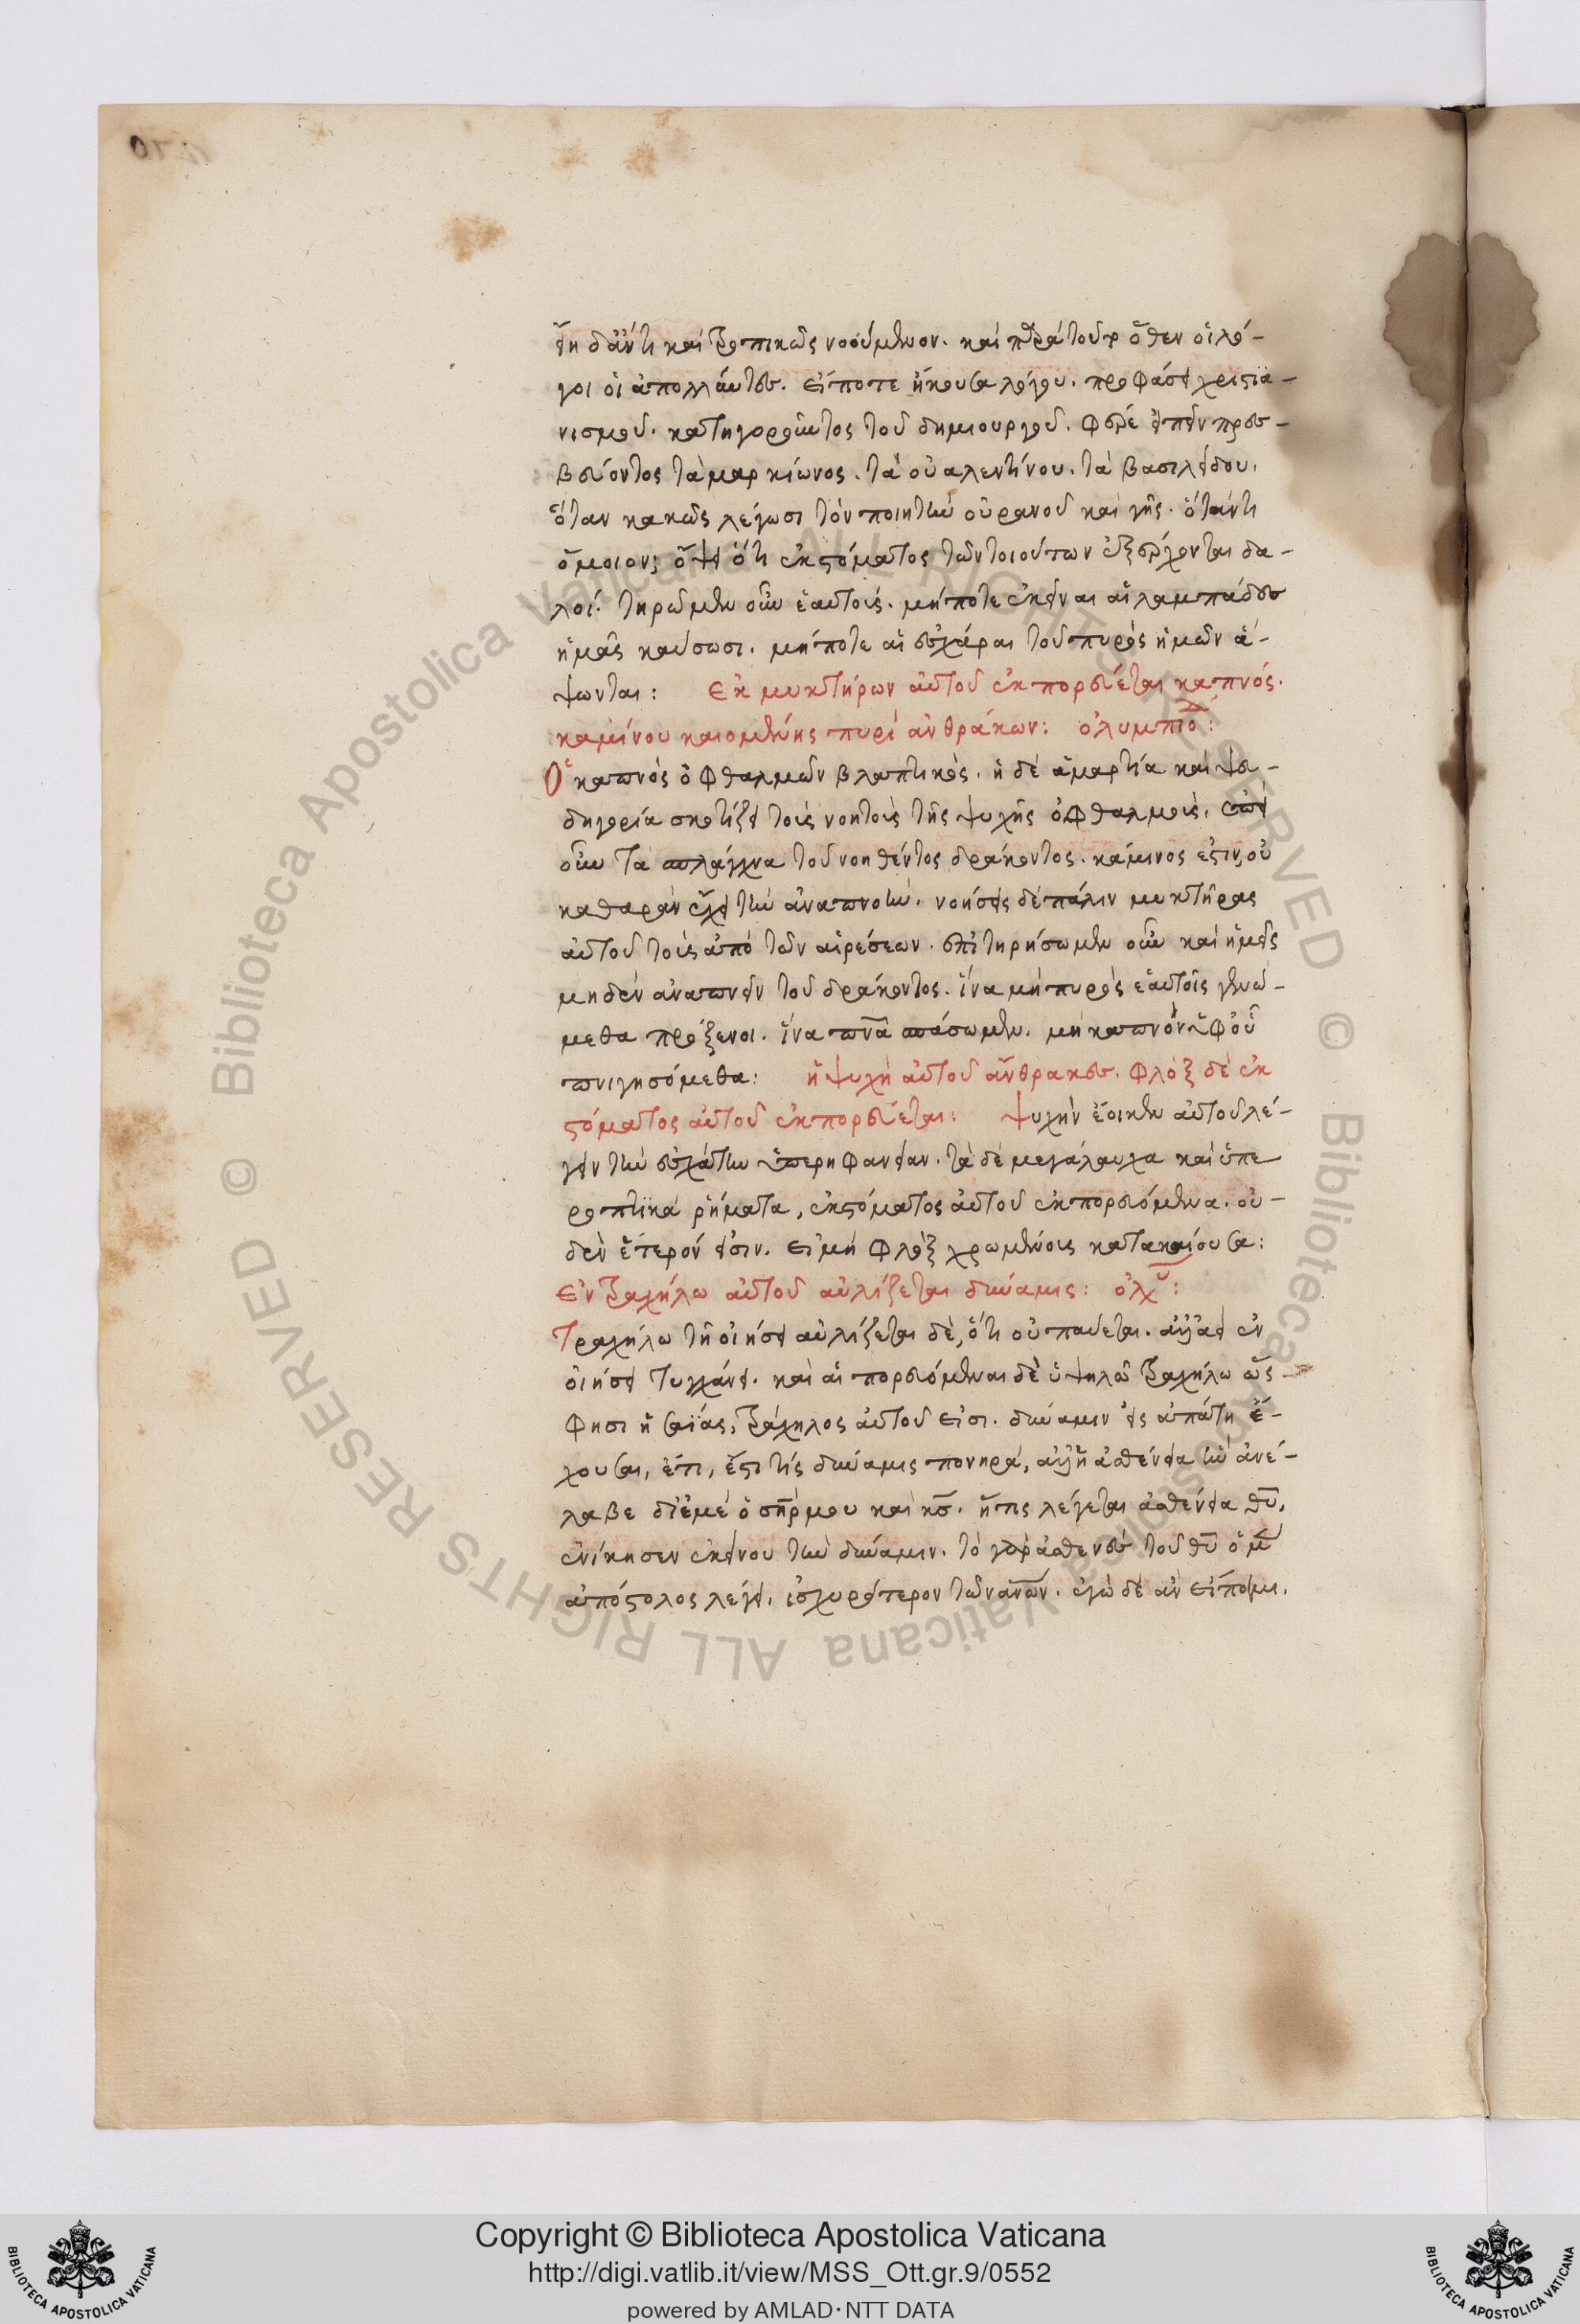 εἴη δ' ἄν τι καὶ τροπικῶς νοούμενον. καὶ πρῶτον ὅθεν οἱ λό-
γοι οἱ ἀπολλύντες. εἴποτε ἤκουσα λόγου. προφάσει χριστια-
νισμοῦ. κατηγοροῦντος τοῦ δημιουργοῦ. φέρε εἰπεῖν πρεσ-
βεύοντος τὰ μαρκίωνος. τὰ οὐαλεντίνου. τὰ βασιλείδου.
ὅταν κακῶς λέγωσι τὸν ποιητὴν οὐρανοῦ καὶ γῆς. ὅταν τι
ὅμοιον; ὄψει ὅτι ἐκ στόματος τῶν τοιούτων ἐξέρχονται δα-
λοί. τηρῶμεν οὖν ἑαυτούς. μήποτε ἐκεῖναι αἱ λαμπάδες
ἡμᾶς καύσωσι. μήποτε αἱ ἐσχάραι τοῦ πυρὸς ἡμῶν ἅ-
ψωνται: Ἐκ μυκτήρων αὐτοῦ ἐκπορεύεται καπνός.
καμίνου καιομένης πυρὶ ἀνθράκων: ὀλυμπιοδ:
Ὁ καπνὸς ὀφθαλμῶν βλαπτικός. ἡ δὲ ἁμαρτία καὶ ψευ-
δηγορία σκοτίζει τοὺς νοητοὺς τῆς ψυχῆς ὀφθαλμούς. ἐπεὶ
οὖν τὰ σπλάγχνα τοῦ νοηθέντος δράκοντος. κάμινος ἐστιν, οὐ
καθαρὰν ἔχει τὴν ἀναπνοήν. νοήσεις δὲ πάλιν μυκτῆρας
αὐτοῦ τοὺς ἀπὸ τῶν αἱρέσεων. ἐπιτηρήσωμεν οὖν καὶ ἡμεῖς
μηδὲν ἀναπνεῖν τοῦ δράκοντος. ἵνα μὴ πυρὸς ἑαυτοῖς γενώ-
μεθα πρόξενοι. ἵνα πνα σπάσωμεν. μὴ καπνὸν ὑφ' οὗ
πνιγησόμεθα: ἡ ψυχὴ αὐτοῦ ἄνθρακες. φλὸξ δὲ ἐκ
στόματος αὐτοῦ ἐκπορεύεται: ψυχὴν ἔοικεν αὐτοῦ λέ-
γειν τὴν ἐσχάτην ὑπερηφανείαν. τὰ δὲ μεγάλαυχα καὶ ὑπε
ροπτικὰ ῥήματα, ἐκ στόματος αὐτοῦ ἐκπορευόμενα. οὐ-
δὲν ἕτερόν εἰσιν. εἰ μὴ φλὸξ χρωμένοις κατακαίουσα:
Ἐν τραχήλω αὐτοῦ αὐλίζεται δύναμις: ὀλυ:
Τραχήλω τῇ οἰήσει αὐλίζεται δὲ, ὅτι οὐ παύεται. ἀλλ' ἀεὶ ἐν
οἰήσει τυγχάνει. καὶ αἱ πορευόμεναι δὲ ὑψηλῶ τραχήλω ὥς
φησι ἡσαΐας, τράχηλος αὐτοῦ εἰσι. δύναμιν εἰς ἀπάτην ἔ-
χουσαι, ἔτι, ἔστι τίς δύναμις πονηρά, ἀλλ' ἡ ἀσθένεια ἣν ἀνέ-
λαβε δι' ἐμὲ ὁ σηρ μου καὶ κς. ἥτις λέγεται ἀσθένεια θυ,
ἐνίκησεν ἐκείνου τὴν δύναμιν. τὸ γὰρ ἀσθενὲς τοῦ θυ ὁ μὲν
ἀπόστολος λέγει. ἰσχυρότερον τῶν ἀνων. ἐγὼ δὲ ἂν εἴποιμι.
Copyright © Biblioteca Apostolica Vaticana
http://digi.vatlib.it/view/MSS_Ott.gr.9/0552
powered by AMLAD·NTT DATA